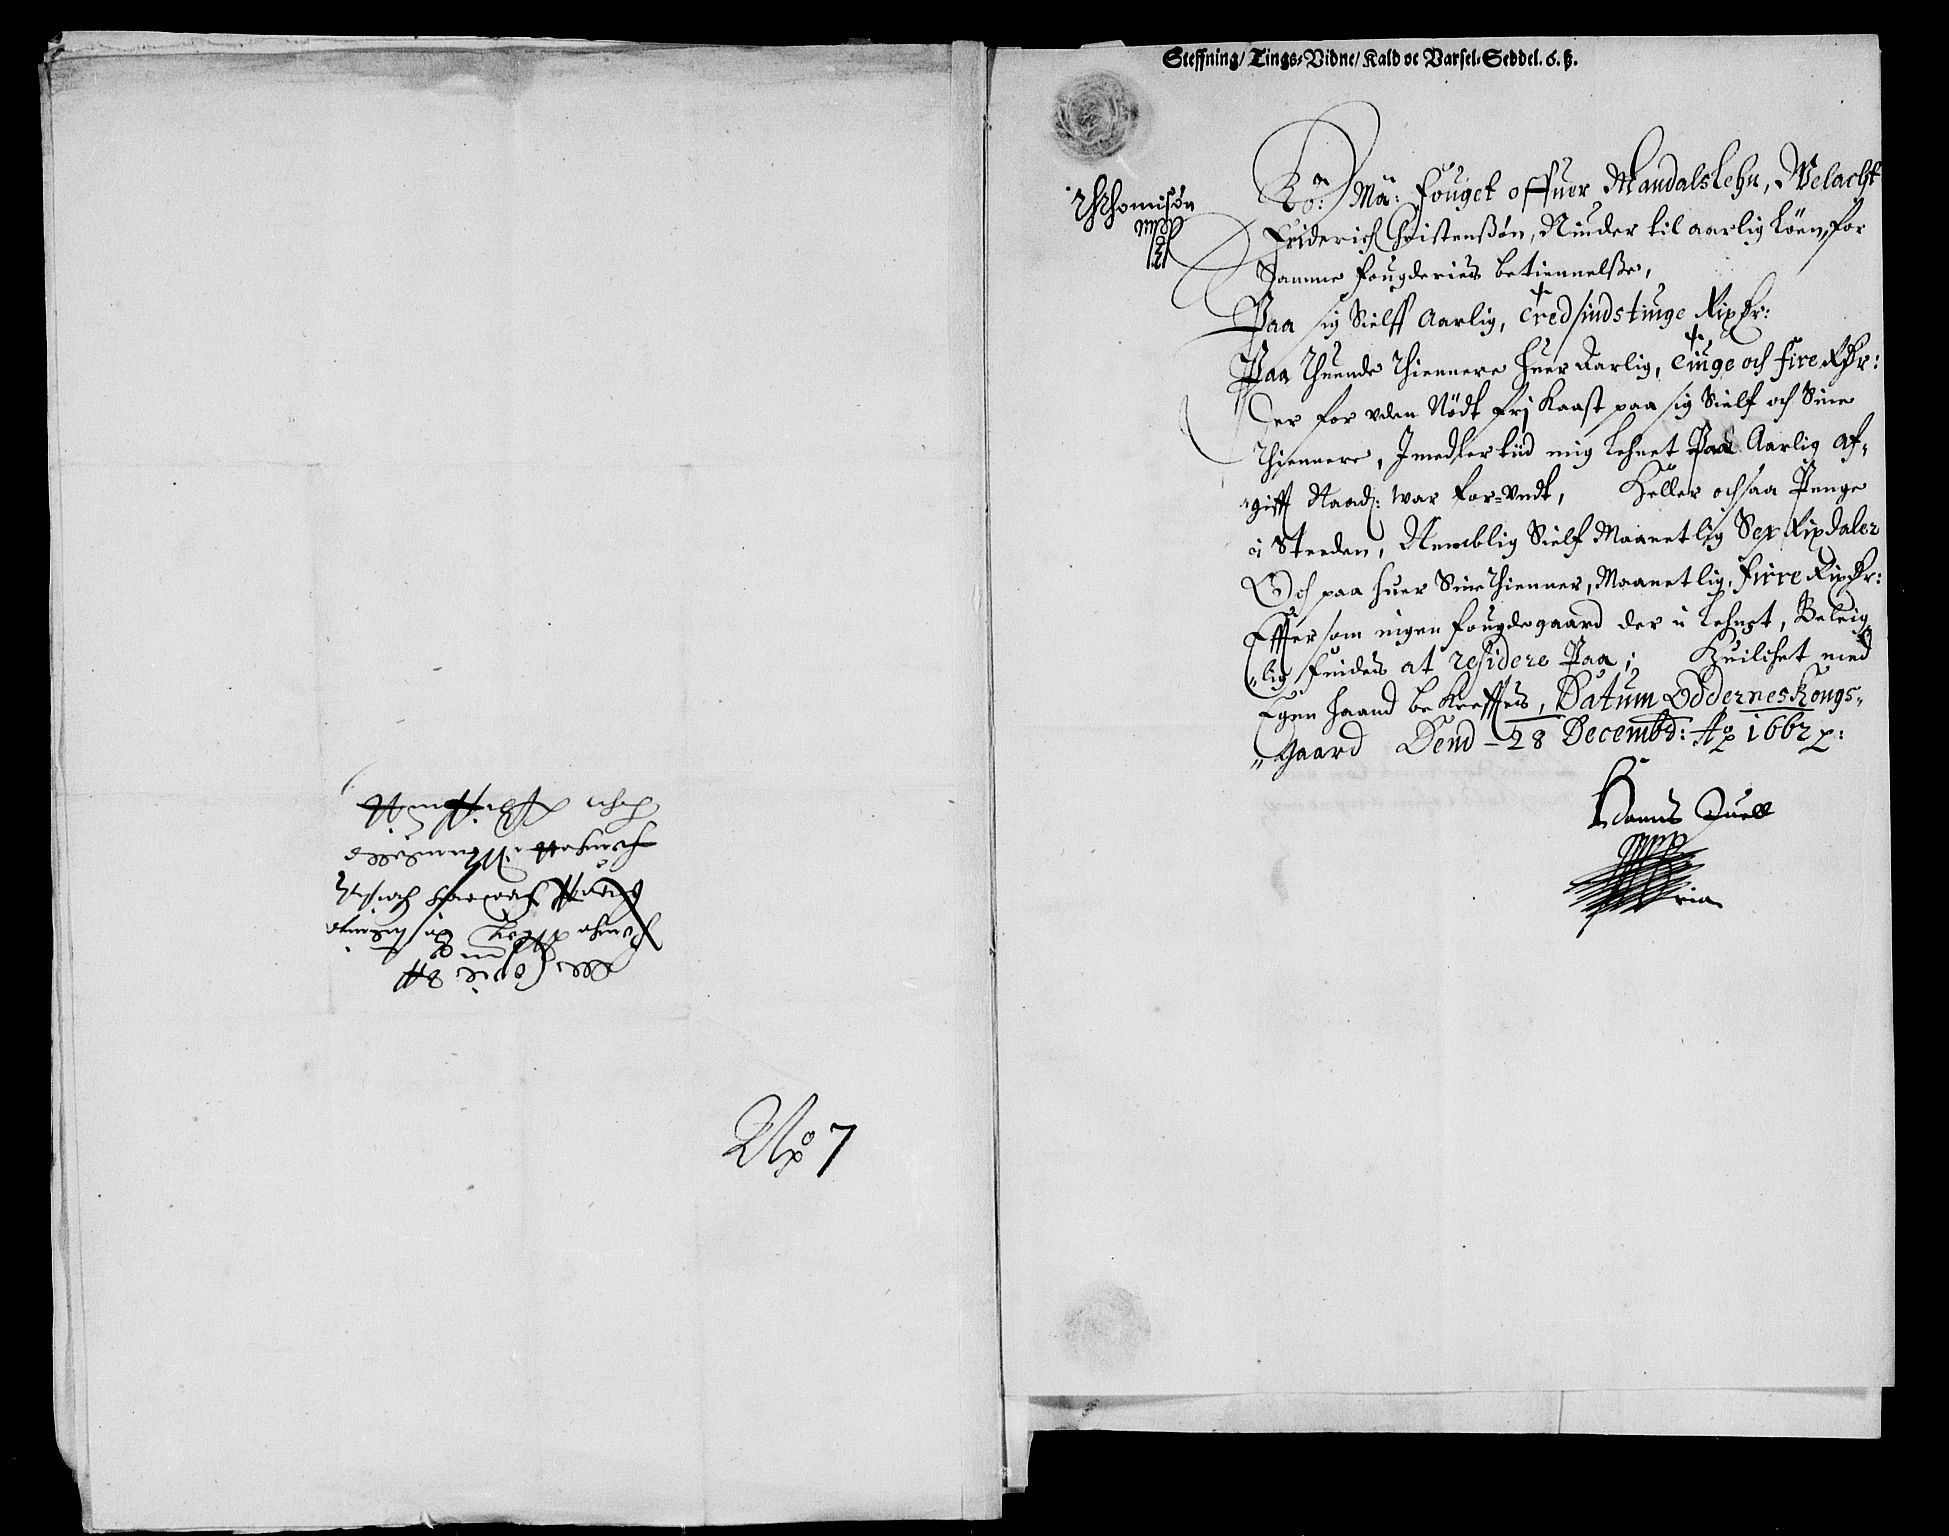 No 7
Steffning/ Tings-Vidne/ Kald oc Varsel-Seddel. 6. ß.
Thomisøn
mpp
Ko: Ma: Fouget offuer Mandalslehn, Velacht
Friderich Christenßøn, Niuder til aarlig Löen, for
Samme fougderies betiennelße,
Paa sig Sielff Aarlig, tredsindstiuge RixDr:
Paa Thuende Thiennere huer Aarlig, tiuge och fire RDr:
Der for uden Nödt frj Kaast paa sig Sielf och Sine
Thiennere, Imedlertiid mig Lehnet Paa Aarlig Af-
"gifft Naad: war for-undt, Heller och saa Penge
i Steeden, Nemblig Sielf Maanetlig Sex Rixdaler
Och paa huer Sine Thienner, Maanetlig, firre RixDr:
Effter som ingen fougdegaard der i Lehnet, Beleig-
"lig findes at residere Paa; Huilchet med
Egen haand bekrefftes, Datum Oddernes Kongs-
"Gaard Dend - 28 Decembr: Ao 1662 p:
Hanns Juell
mpp
ria